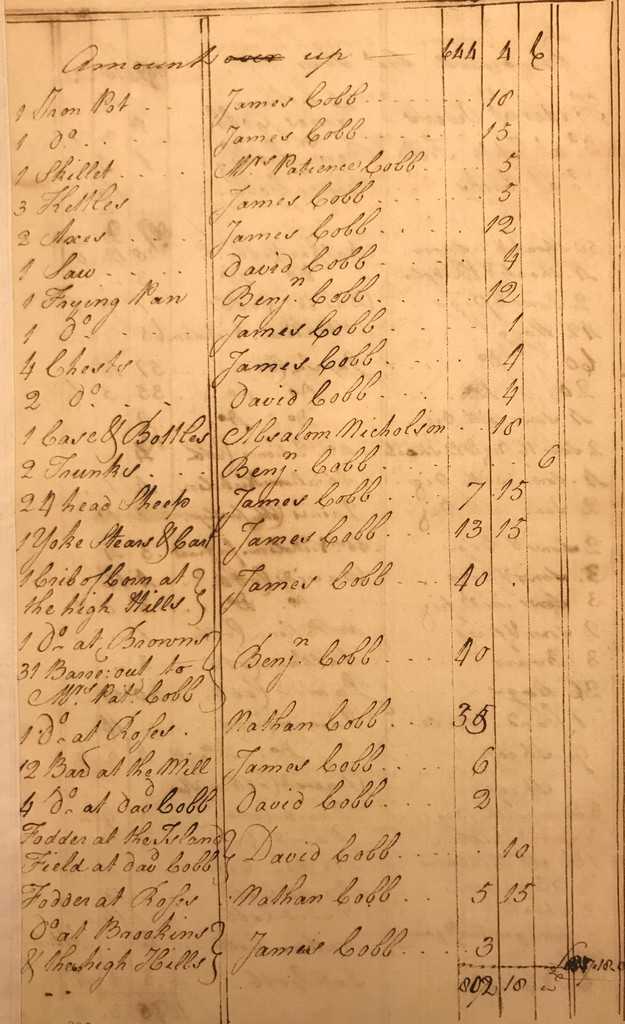 Amount over up — 644 4 6
1 Iron Pot . . James Cobb . . . . 18
1 Do. . . . James Cobb . . . . 15
1 Skillet . . . Mrs Patience Cobb . . 5
3 Kettles James Cobb . . . . 5
2 Axes . . . James Cobb . . . . 12
1 Saw . . . . David Cobb . . . . 4
1 Frying Pan Benjn. Cobb . . . . 12
1 do. . . . James Cobb . . . . 1
4 Chests James Cobb . . . . 4
2 do. . . . David Cobb . . . . 4
1 Case & Bottles Absalom Nicholson . . 18
2 Trunks . . . Benjn. Cobb . . . . 6
24 head Sheep James Cobb . . . 7 15
1 Yoke Stears & Cart James Cobb . . . 13 15
1 Crib of Corn at
the high Hills James Cobb . . . 40
1 Do. at Browns
31 Barre: out to Benjn. Cobb . . . 40
Mrs Pat. Cobb
1 Do. at Roses . Nathan Cobb . . . 35
12 Bard at the Mill James Cobb . . . 6
4 Do. at davd Cobb David Cobb . . . 2
Fodder at the Island
Field at davd Cobb David Cobb . . . . 10
Fodder at Roses Nathan Cobb . . . 5 15
Do. at Brookins
& the high Hills James Cobb . . . 3
802 18